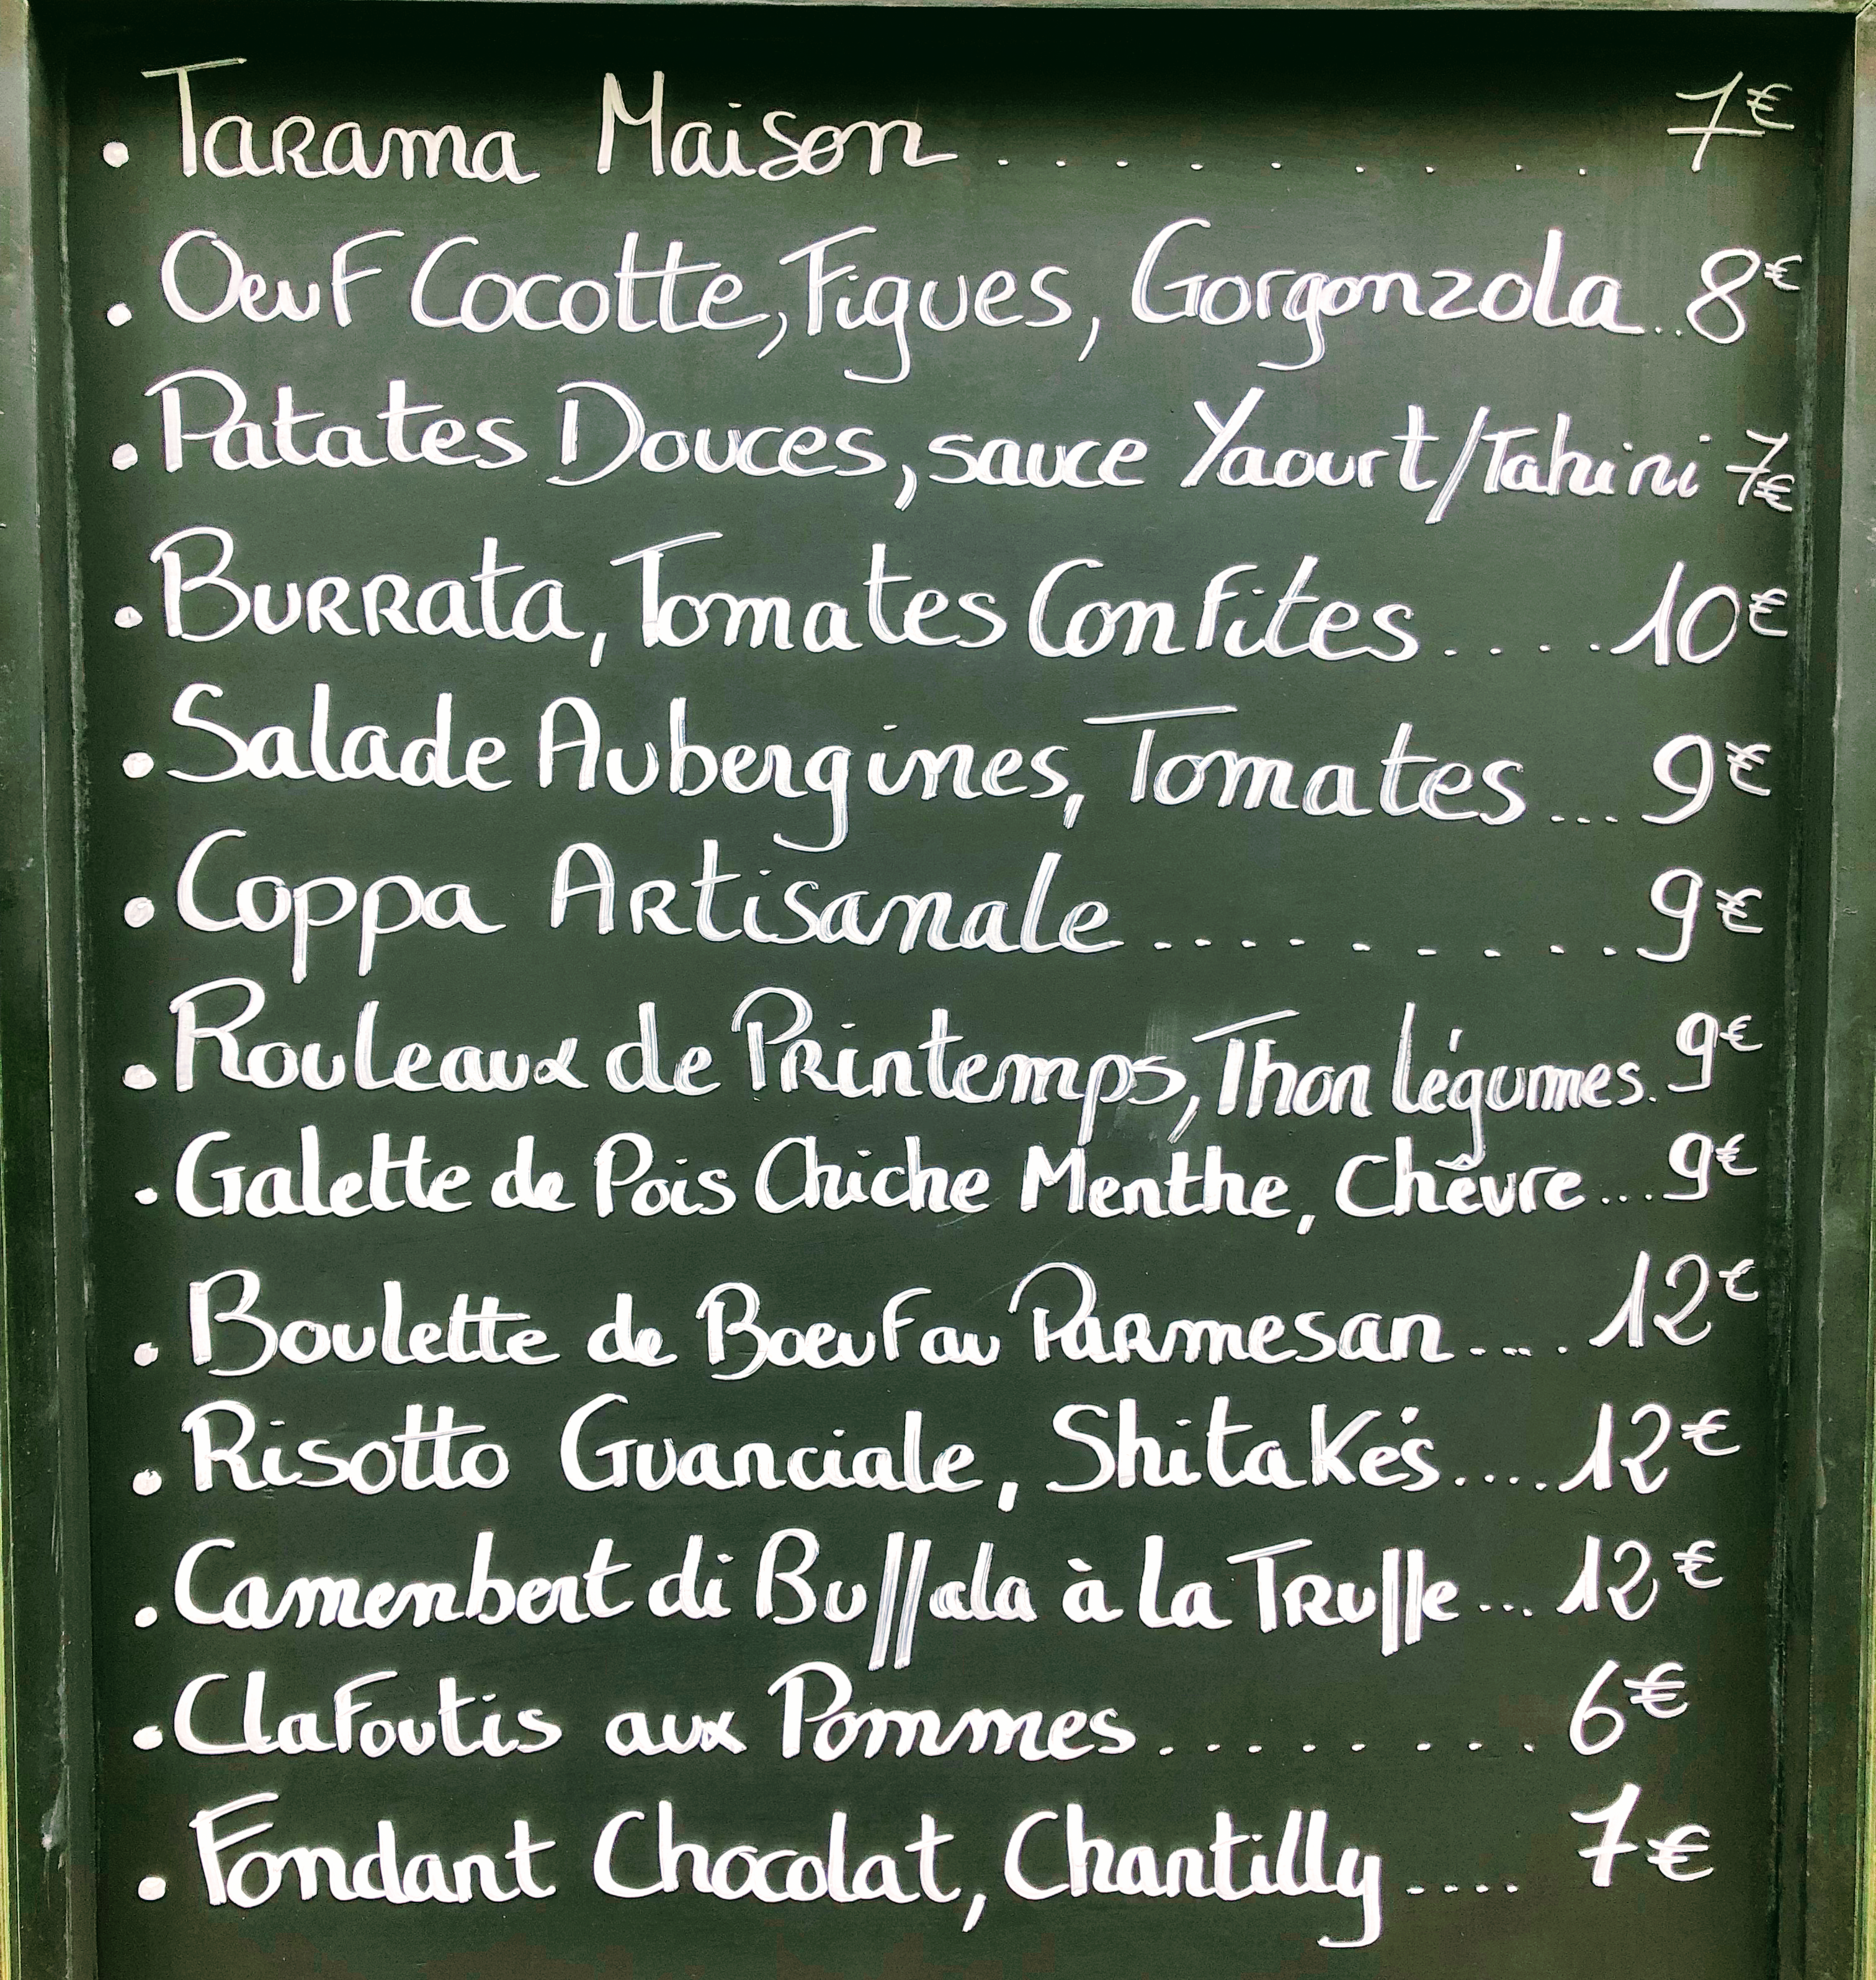 . Tarama Maison .......... 7€
. Oeuf Cocotte, Figues, Gorgonzola.. 8€
. Patates Douces, sauce Yaourt/Tahini 7€
. Burrata, Tomates Confites..... 10€
. Salade Aubergines, Tomates... 9€
. Coppa Artisanale.......... 9€
. Rouleaux de Printemps, Thon légumes. 9€
. Galette de Pois Chiche Menthe, Chêvre... 9€
. Boulette de Boeuf au Parmesan..... 12€
. Risotto Guanciale, Shitakés.... 12€
. Camenbert di Buffala à la Truffe... 12€
. Clafoutis aux Pommes......... 6€
. Fondant Chocolat, Chantilly.... 7€